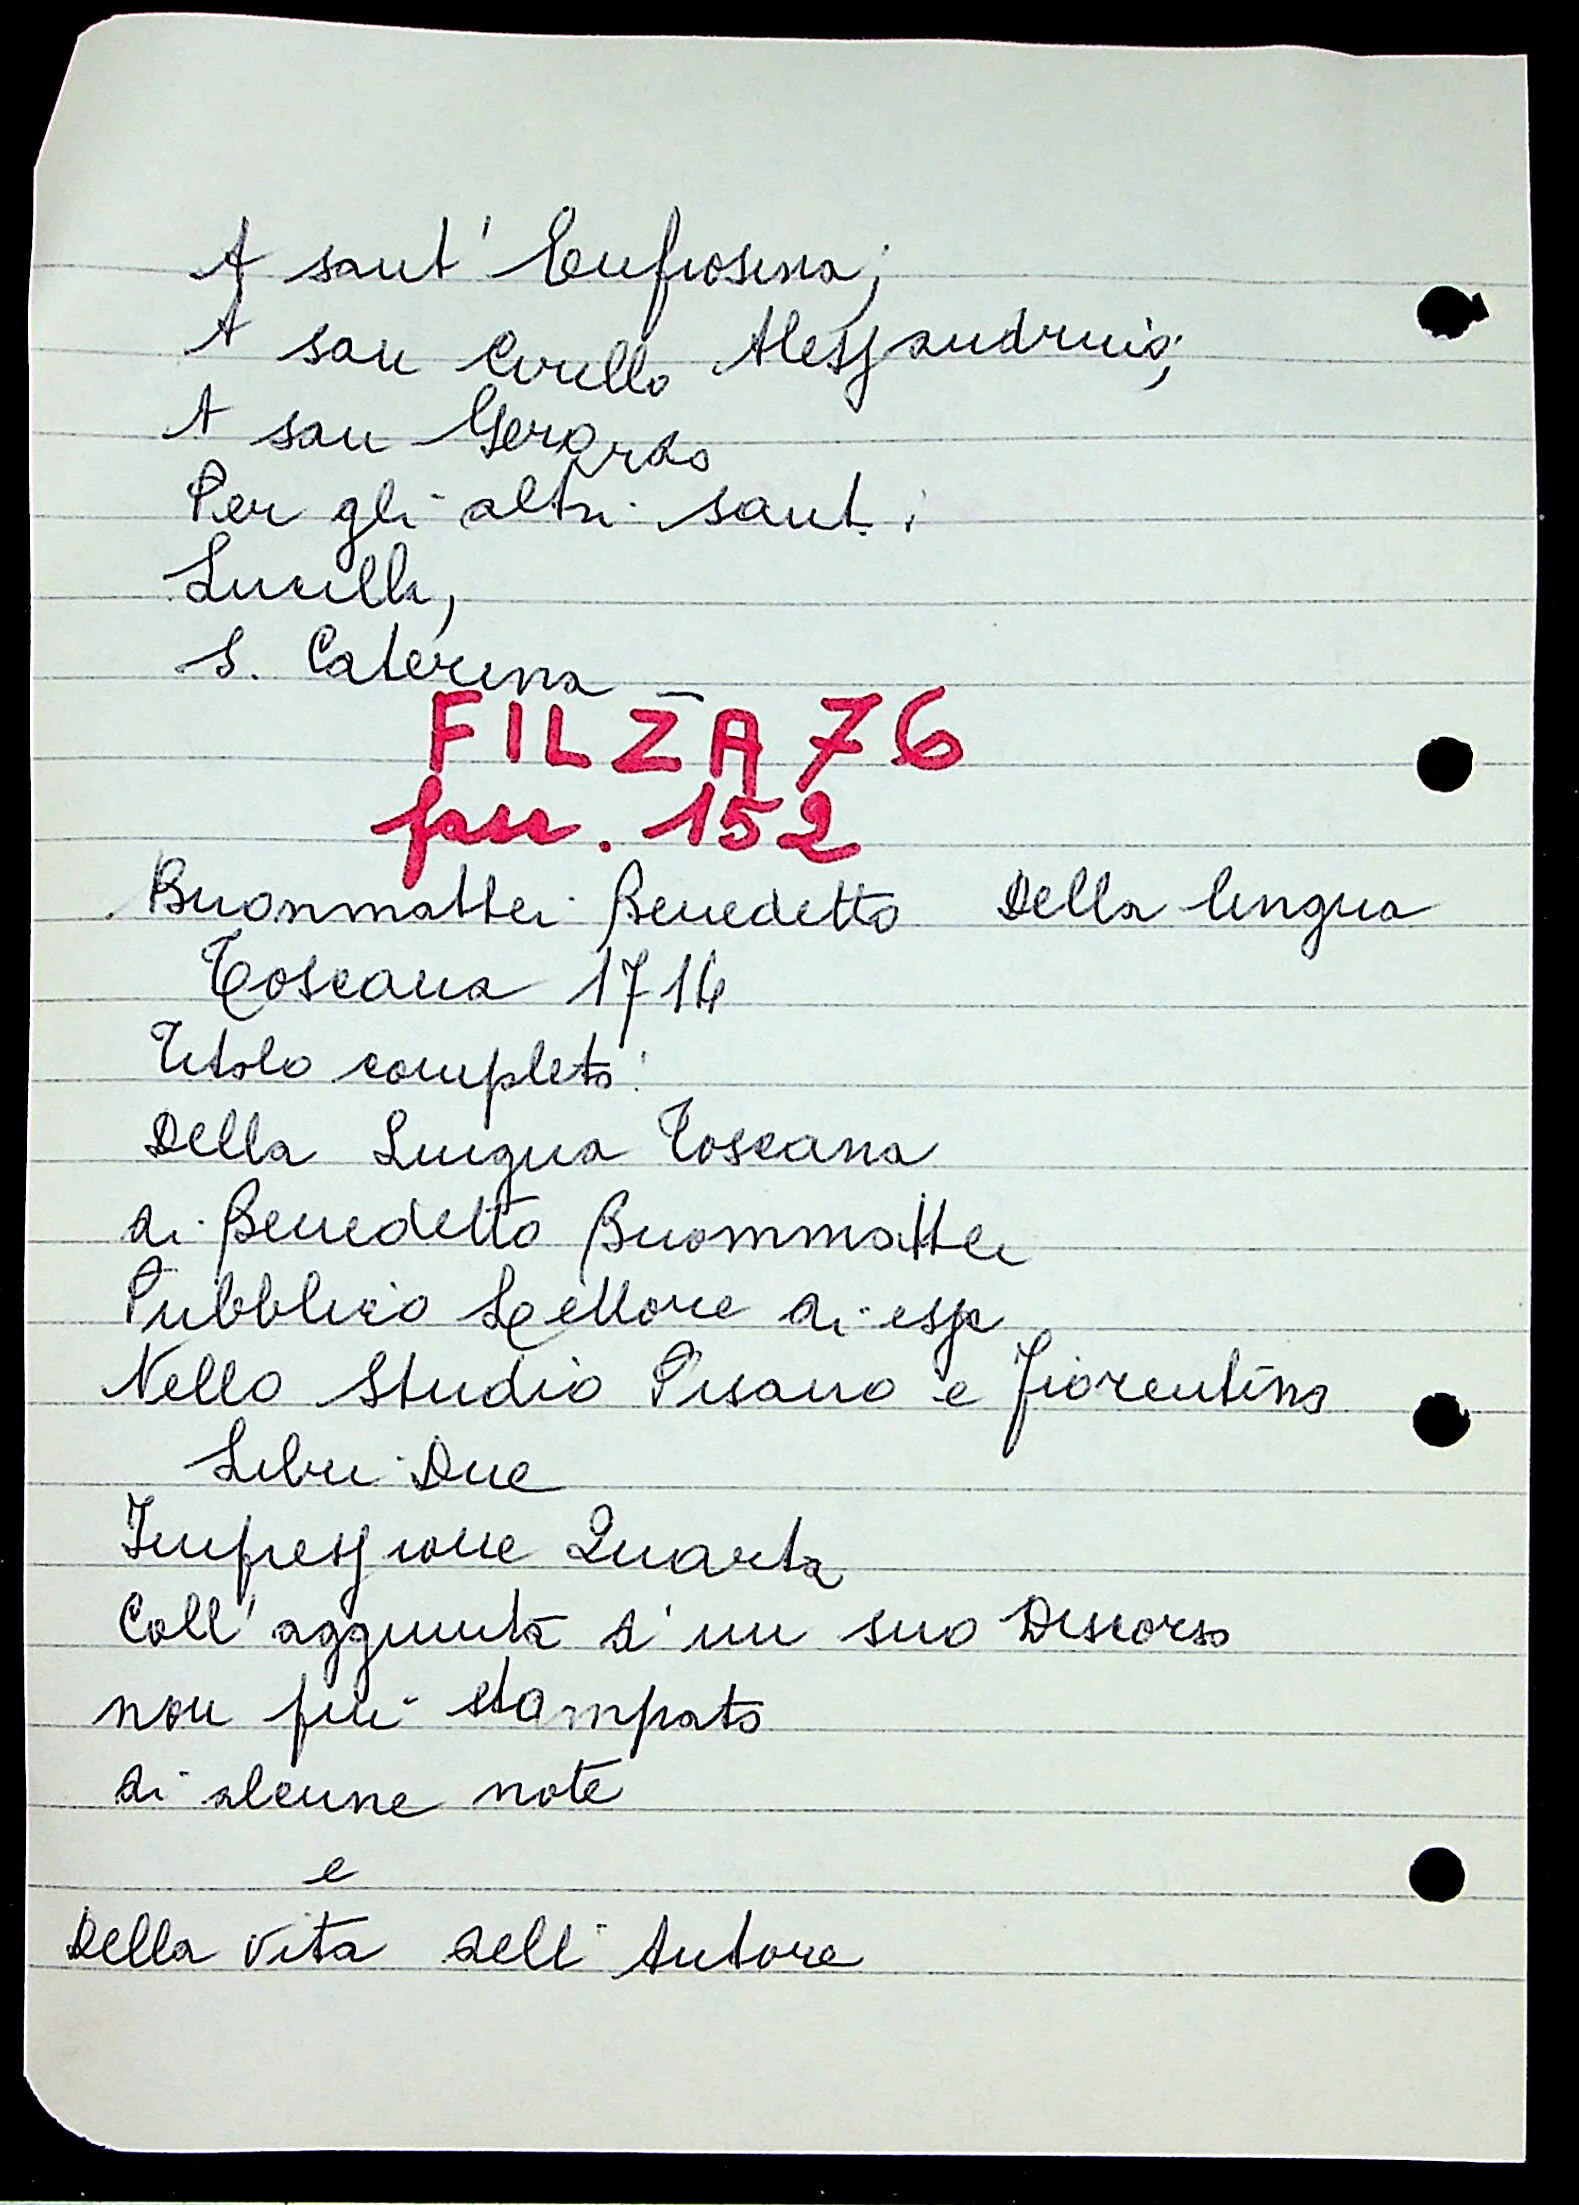 A sant' Eufrosina;
A san Cirillo Alessandrino;
A san Gerardo
Per gli altri santi
Lucilla,
S. Caterina
FILZA 76
per. 152
Buonmattei Benedetto Della lingua
Toscana 1714
Titolo completo:
Della Lingua Toscana
di Benedetto Buommattei
Pubblico Lettore di essa
Nello Studio Pisano e Fiorentino
Libri Due
Impressione Quarta
Coll'aggiunta d'un suo Discorso
non più stampato
di alcune note
e
Della vita dell'Autore